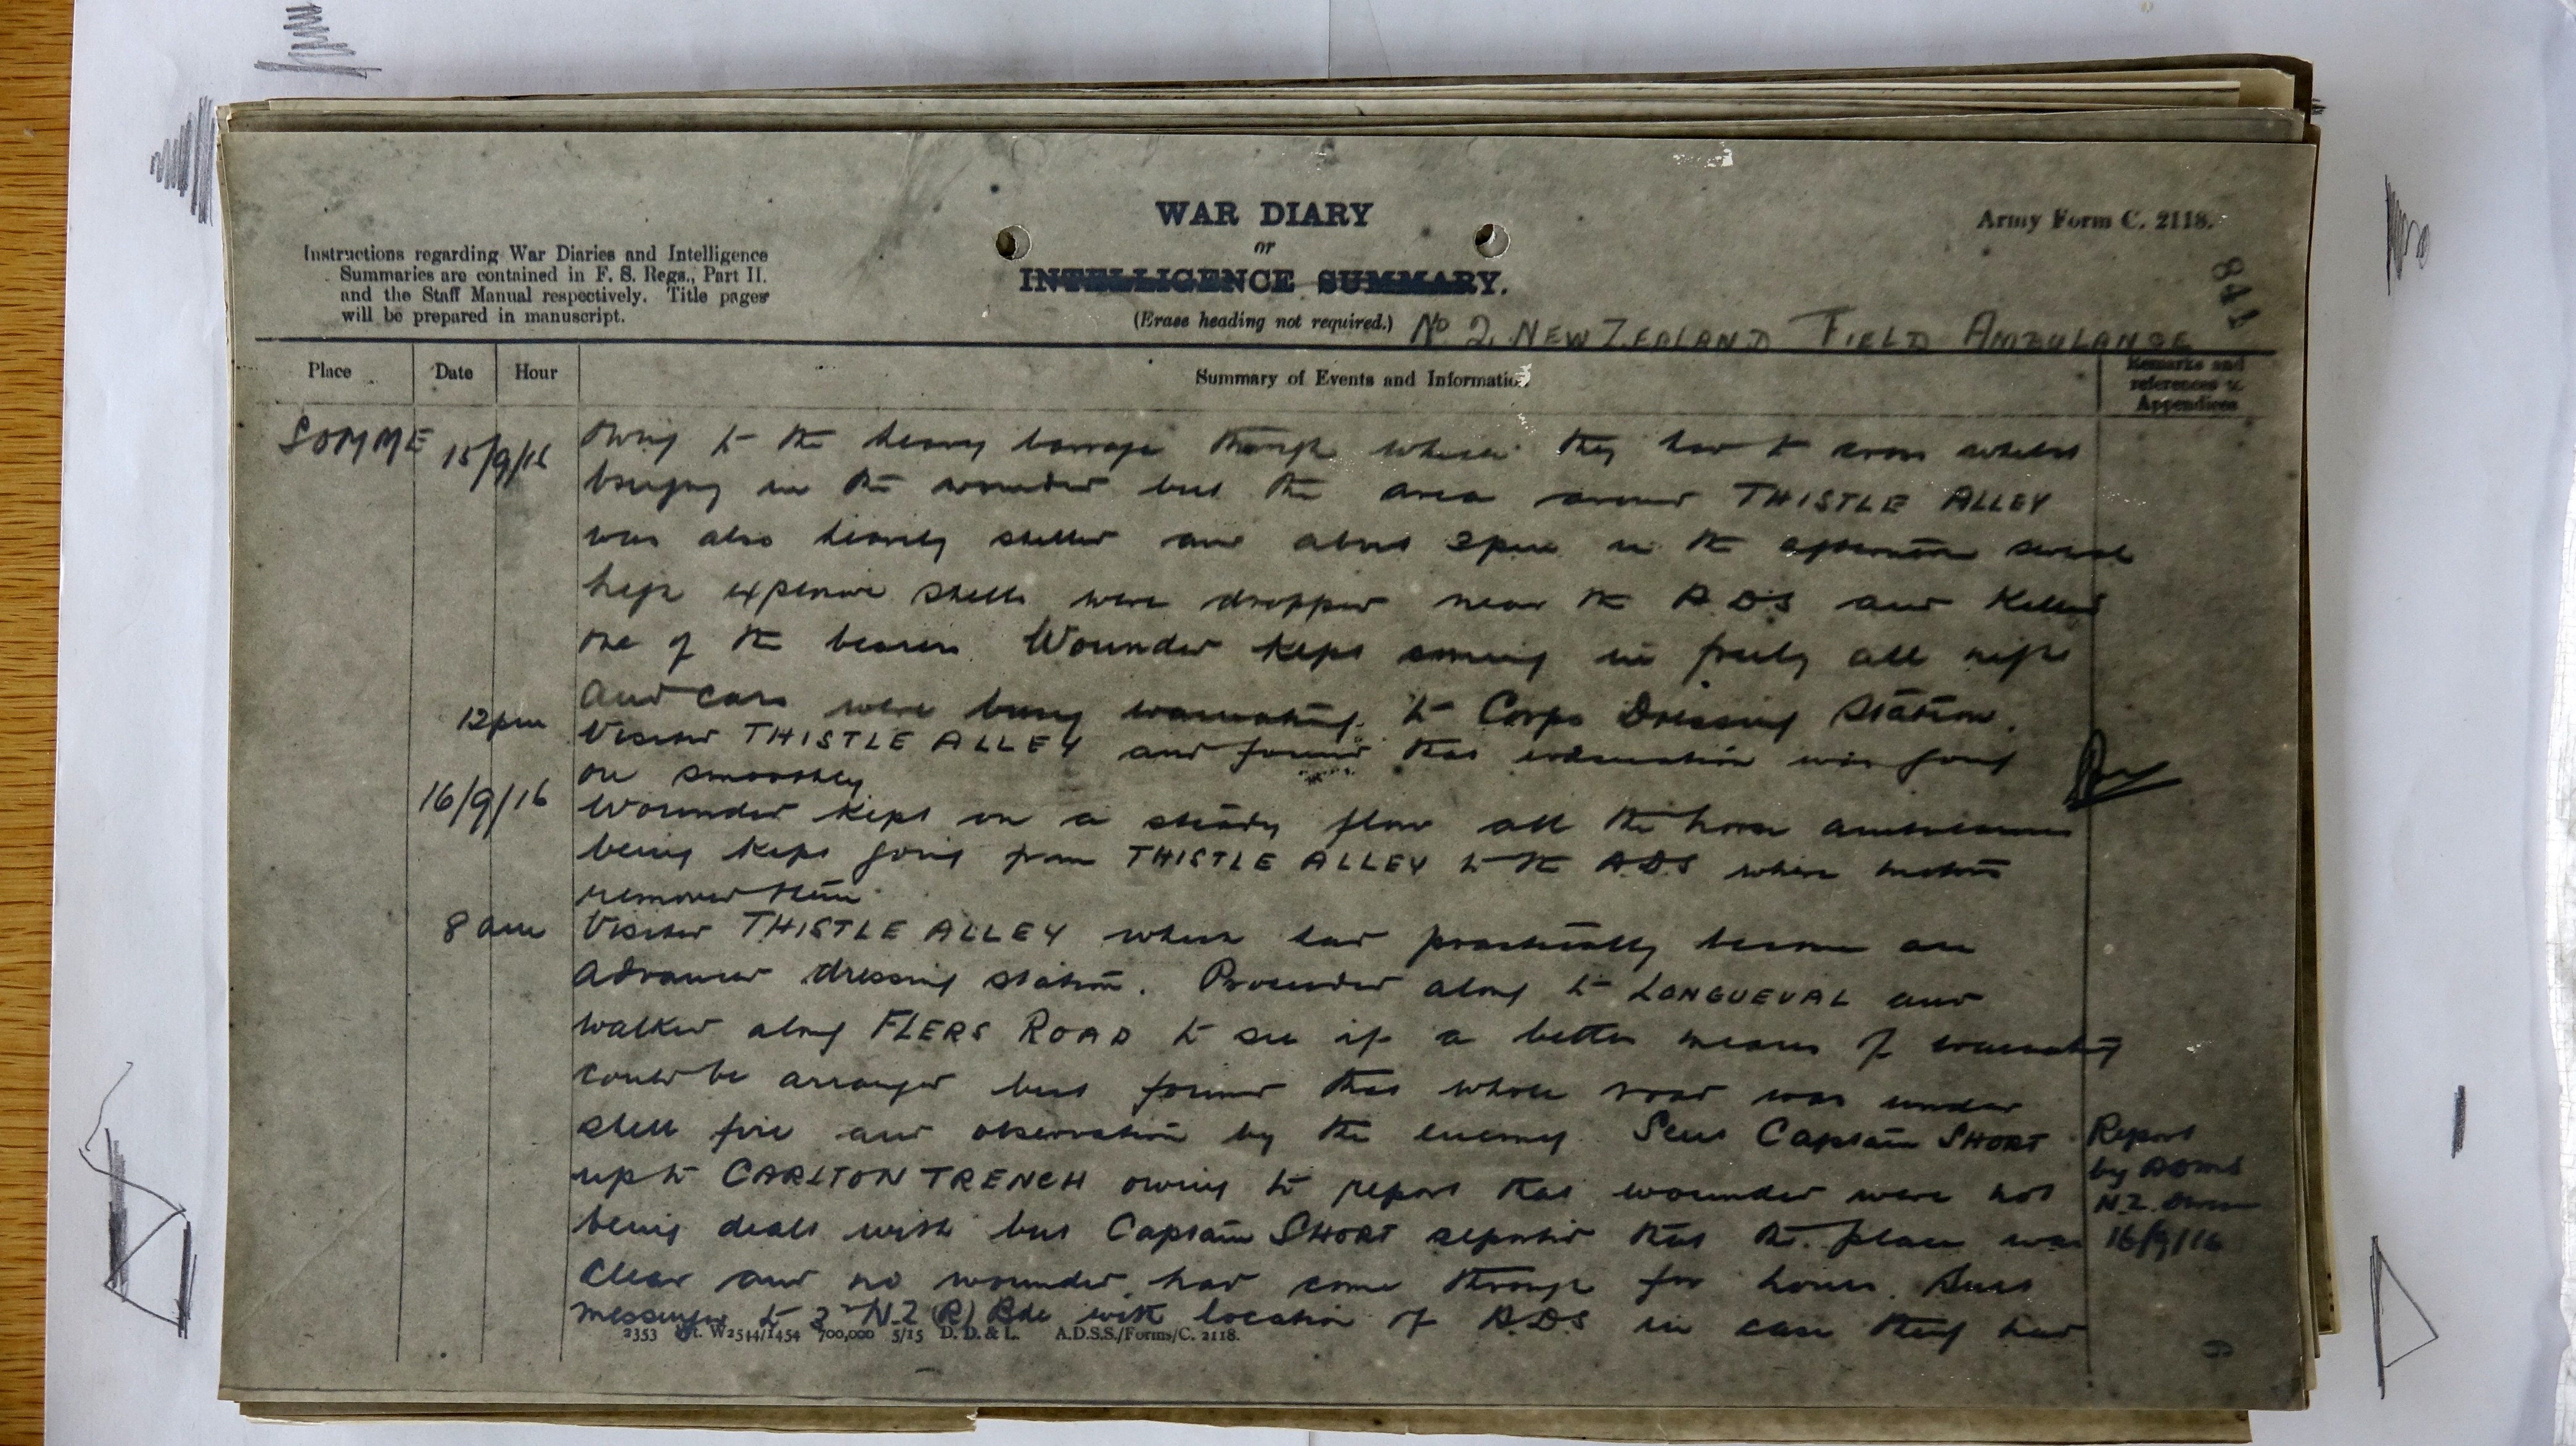 WAR DIARY
or
INTELLIGENCE SUMMARY.
(Erase heading not required.)
Army Form C. 2118.
Instructions regarding War Diaries and Intelligence
Summaries are contained in F. S. Regs., Part II.
and the Staff Manual respectively. Title pages
will be prepared in manuscript.
No 2 NEW ZEALAND FIELD AMBULANCE
Place Date Hour Summary of Events and Information Remarks and references to Appendices
SOMME 15/9/16 Owing to the heavy barrage through which they had to cross whilst
bringing in the wounded but the area around THISTLE ALLEY
was also heavily shelled and about 3pm in the afternoon several
high explosive shells were dropped near the A.D.S and killed
one of the bearers. Wounded kept coming in freely all night
and cars were busy evacuating to Corps Dressing Station.
12pm Visited THISTLE ALLEY and found that evacuation was going
on smoothly
16/9/16 Wounded kept on a steady flow all the horse ambulances
being kept going from THISTLE ALLEY to the A.D.S where motors
removed them.
8 am Visited THISTLE ALLEY which had practically become an
advanced dressing station. Proceeded along to LONGUEVAL and
walked along FLERS ROAD to see if a better means of evacuating
could be arranged but found that whole road was under
shell fire and observation by the enemy. Sent Captain SHORT
up to CARLTON TRENCH owing to report that wounded were not
being dealt with but Captain SHORT reported that the place was
clear and no wounded had come through for hours. Sent
messenger to 3rd N.Z (R) Bde with location of A.D.S in case they had
Report
by ADMS
N.Z. Divn
16/9/16
2353 Wt. W2544/1454 700,000 5/15 D. D. & L. A.D.S.S./Forms/C. 2118.